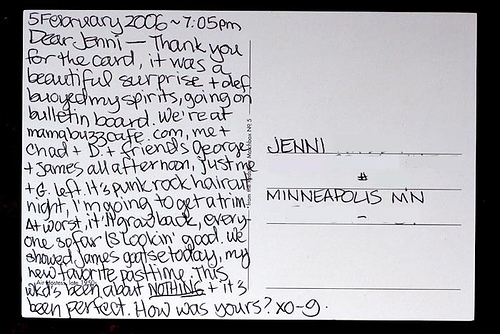 5 February 2006 ~ 7:05pm
Dear Jenni — Thank you
for the card, it was a
beautiful surprise + def.
buoyed my spirits, going on
bulletin board. We're at
mamabuzzcafe.com, me +
Chad + D. + friends George
+ James all afternoon, just me
+ G. left. It's punk rock haircut
night, I'm going to get a trim.
At worst, it'll grow back, every-
one so far is lookin' good. We
showed James goatse today, my
new favorite pasttime. This
wkd's been about NOTHING + it's
been perfect. How was yours? xo-g.
JENNI
#
MINNEAPOLIS MN